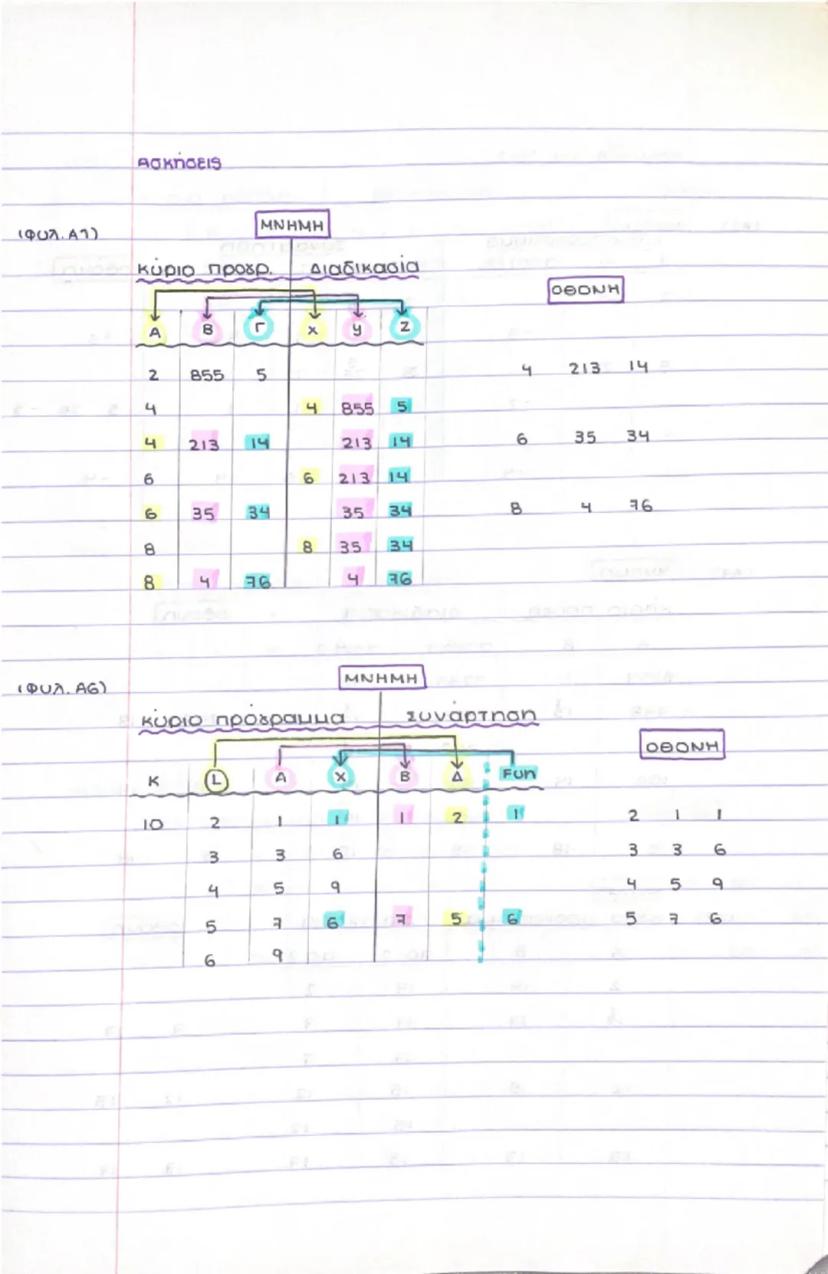 Ασκήσεις
(Φυλ. Α1)
ΜΝΗΜΗ
κύριο προγρ. Διαδικασία
ΟΘΟΝΗ
Α Β Γ Χ Υ Ζ
2 855 5
4 213 14
4 4 855 5
4 213 14 213 14
6 35 34
6 6 213 14
6 35 34 35 34
8 4 76
8 8 35 34
8 4 76 4 76
(Φυλ. Α6)
ΜΝΗΜΗ
κύριο πρόγραμμα Συνάρτηση
ΟΘΟΝΗ
Κ L Α Χ Β Δ Fun
10 2 1 1 1 2 1
2 1 1
3 3 6
3 3 6
4 5 9
4 5 9
5 7 6 7 5 6
5 7 6
6 9